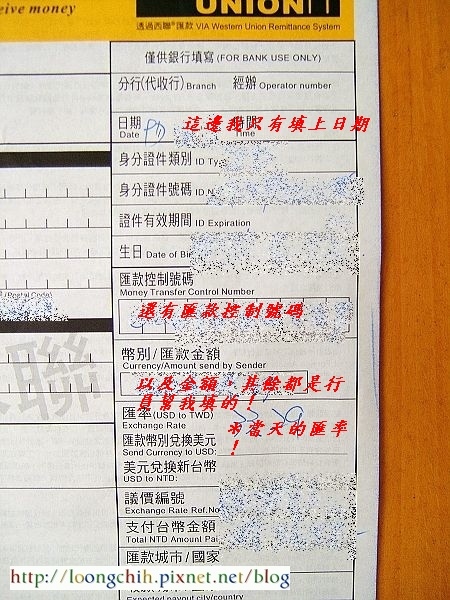 eive money
UNION
透過西聯®匯款 VIA Western Union Remittance System
僅供銀行填寫 (FOR BANK USE ONLY)
分行(代收行) Branch 經辦 Operator number
日期 時間
Date Time
這邊我只有填上日期
身分證件類別 ID Ty
身分證件號碼 ID N
證件有效期間 ID Expiration
生日 Date of Bi
匯款控制號碼
Money Transfer Control Number
(Postal Code)
還有匯款控制號碼
聯
幣別/匯款金額
Currency/Amount send by Sender
以及金額，其餘都是行
員幫我填的！
匯率(USD to TWD)
Exchange Rate
匯款幣別兌換美元
Send Currency to USD:
為當天的匯率
！
美元兌換新台幣
USD to NTD:
議價編號
Exchange Rate Ref.No
支付台幣金額
Total NTD Amount Pai
匯款城市/國家
http://loongchih.pixnet.net/blog
Expected payout city/country